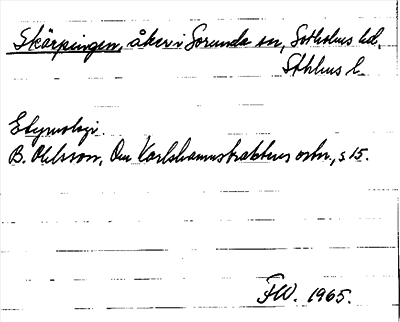 Skärpingen, åker i Sorunda sn, Sotholms hd,
Sthlms l.
Etymologi.
B. Ohlsson, Om Karlshamnstraktens ortn., s 15.
FW. 1965.